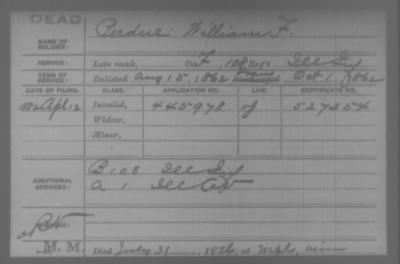 DEAD
NAME OF SOLDIER: Perdue, William F.
SERVICE: Late rank, Co. F, 108 Reg't Ill Inf
TERM OF SERVICE: Enlisted Aug 15, 1862 Discharged Oct 1, 1862
DATE OF FILING. CLASS. APPLICATION NO. LAW. CERTIFICATE NO.
Apl 12 Invalid, 445978 527354
Widow,
Minor,
B 108 Ill Inf
ADDITIONAL SERVICES: A 1 Ill Cav
M. M. Died July 31, 1926, at Mpls, Minn